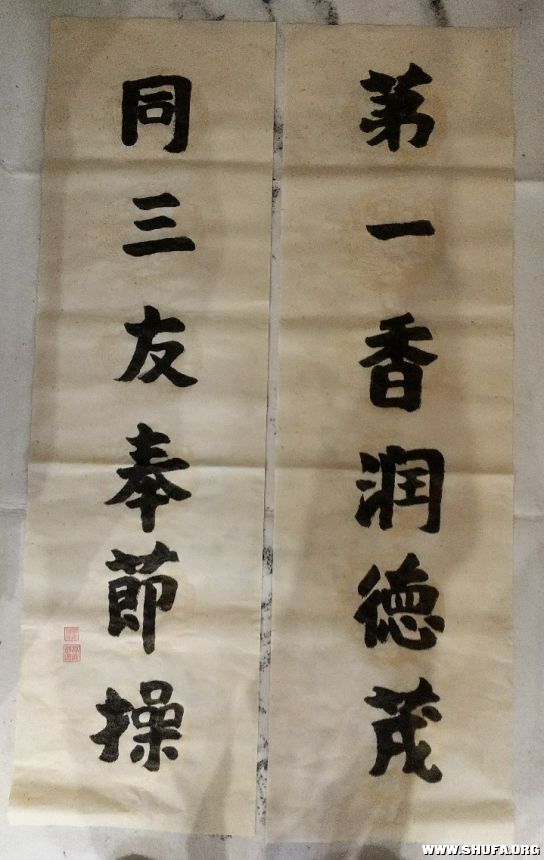 第一香润德茂
同三友奉節操
WWW.SHUFA.ORG